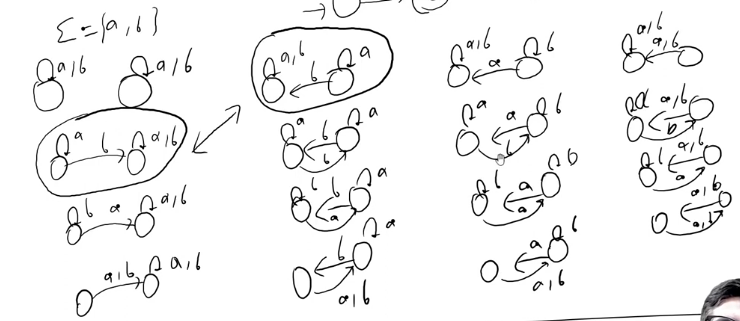 Σ={a,b}
a,b a,b
a b a,b
b a a,b
a,b a,b
a,b b a
a b b a
b b a a
b a a,b
a,b a b
a a b b
b a a b
a b a,b
a,b a,b
a a,b b
b a,b a
a,b a,b